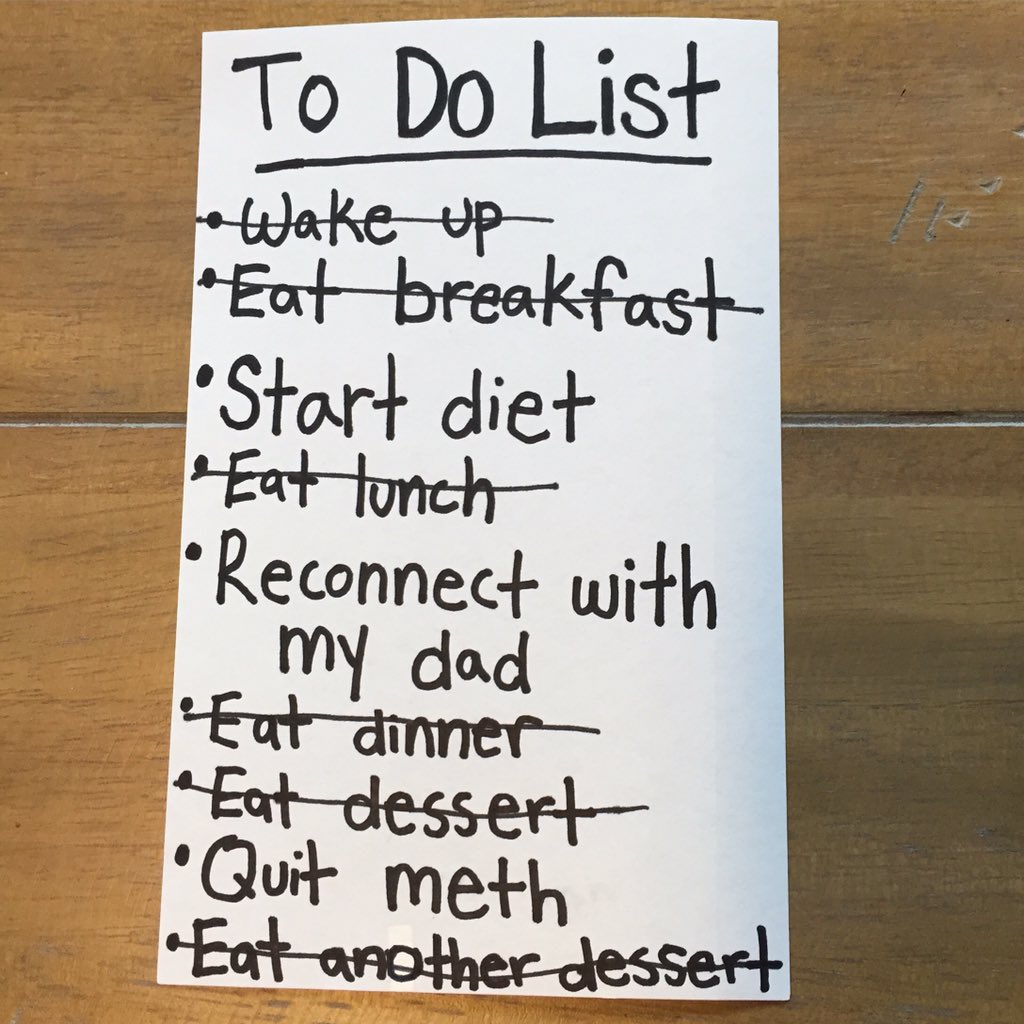 To Do List
• Wake up
• Eat breakfast
• Start diet
• Eat lunch
• Reconnect with
my dad
• Eat dinner
• Eat dessert
• Quit meth
• Eat another dessert